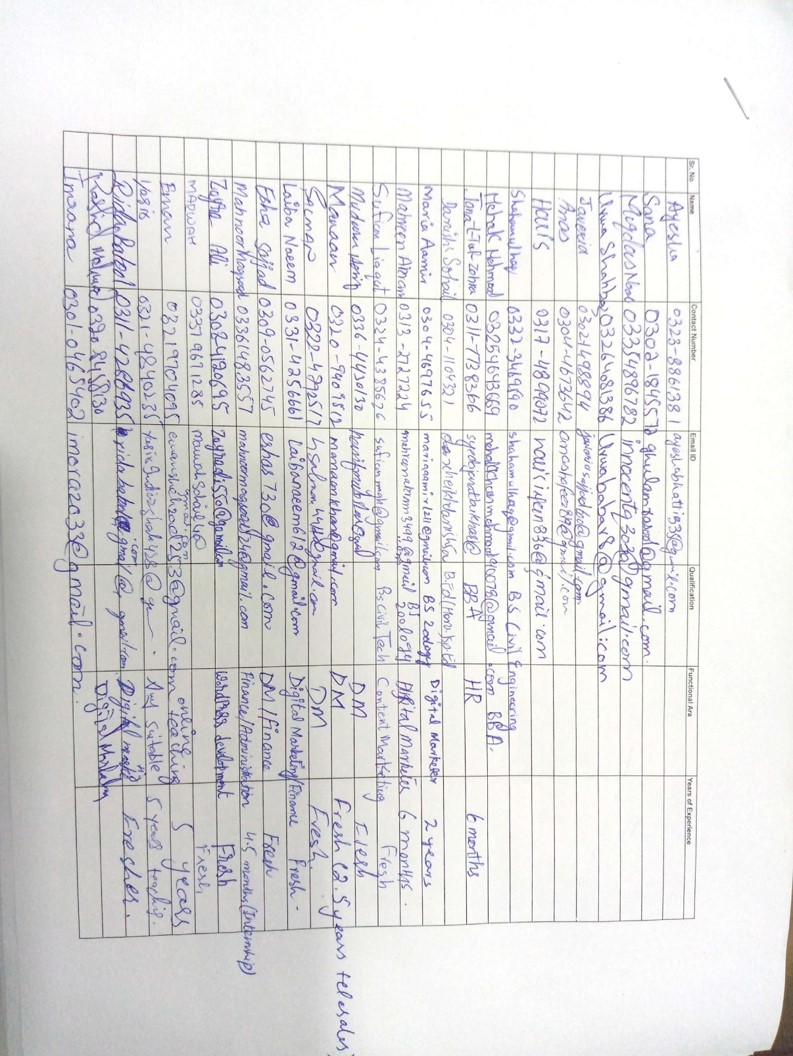 Sr. No Name Contact Number Email ID Qualification Functional Ara Years of Experience
Ayesha 0323-8861381 ayeshabhatti935@gmail.com
Sana 0302-1845572 ghulamrasool@gmail.com
03354896782 innocentq303@gmail.com
Urwa Shahbaz 03264081386 Urwababar8@gmail.com
Javeria 03021498894 javeriasajjad600@gmail.com
Anas 0304-4673642
Haris 0317-4899072
Shahamulhaq 0332-3469590 shahamulhaq@gmail.com BS Civil Engineering
Mehak Mehmood 03254643669 BBA.
0311-7738366 BBA HR 6 months
Danish Sohail 0304-1104321
Maria Aamir 0304-4697655 mariaaamir1211@gmail.com BS Zoology Digital Marketer 2 years
Mahreen Akram 0313-2727224 mahreenakram3499@gmail.com BS Zoology Digital Marketer 6 months.
Sufian Liaqat 0324-4385626 sufian.mgh@gmail.com Bs Civil Tech Content Marketing Fresh
0336-4430130 DM Fresh
Manaan 0320-9409512 manaankhan@gmail.com DM Fresh (2.5 years telesales)
SALMAN 0322-4792517 DM Fresh.
Laiba Naeem 0331-4256661 Laibanaeem612@gmail.com Digital Marketing/Finance Fresh -
Esha Sajjad 0309-0562745 eshas730@gmail.com DM/Finance Fresh
Mahnoor Maqsood 03361483557 mahnoormaqsood724@gmail.com Finance/Administration 4-5 months (Internship)
Ali 0308-4120695 WordPress development Fresh
MARWAH 03379671285 Fresh
Eman 03219704095 emanshehzad253@gmail.com online teaching 5 years
0321-4840235 Any suitable 5 years teaching.
Rida Batool 0311-4286935 Digital Fresher.
Rashid 0320 8458130 Digital Marketing
Imrana 0301-0465402 imoraza033@gmail.com.